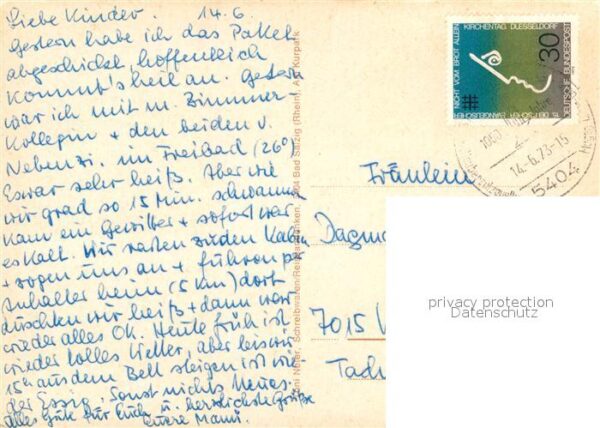 Liebe Kinder. 14.6.
Gestern habe ich das Paket
abgeschickt, hoffentlich
kommt's heil an. Gestern
war ich mit m. Zimmer-
kollegin + den beiden v.
Nebenzi. im Freibad (26°)
Es war sehr heiß. Aber wie
wir grad so 15 Min. schwammen
kam ein Gewitter + sofort war
es kalt. Wir rasten zu den Kabinen
+ zogen uns an + fuhren per
Anhalter heim (5 km) dort
duschten wir heiß + dann war
wieder alles OK. Heute früh ist
wieder tolles Wetter, aber bis wir
15h aus dem Bett steigen ist wie-
der Essig. Sonst nichts Neues.
Alles Gute für Euch u. herzlichste Grüße
Eure Mami.
Bad Salzig (Rhein), Am Kurpark
NICHT VOM BROT ALLEIN
KIRCHENTAG DUESSELDORF
30
DEUTSCHE BUNDESPOST
15. DEUTSCHER EVANGELISCHER
14.-6.73-15
5404
Fräulein
Dagma
7015
privacy protection
Datenschutz